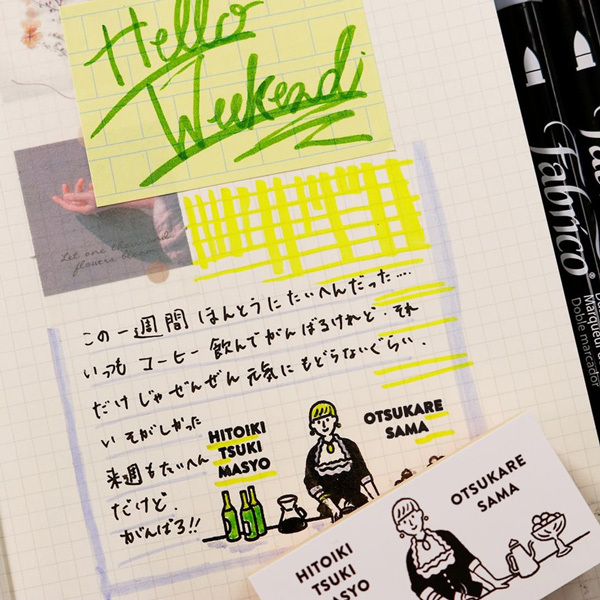 Hello
Weekend
Let one thousand
flowers bloom
この一週間 ほんとうにたいへんだった....
いつも コーヒー飲んでがんばるけれど、それ
だけじゃぜんぜん元気にもどらないぐらい、
いそがしかった
来週もたいへん
だけど、
がんばろ!!
HITOIKI
TSUKI
MASYO
OTSUKARE
SAMA
HITOIKI
TSUKI
MASYO
OTSUKARE
SAMA
Fabrico®
Fabrico
Marqueur double
Doble marcador